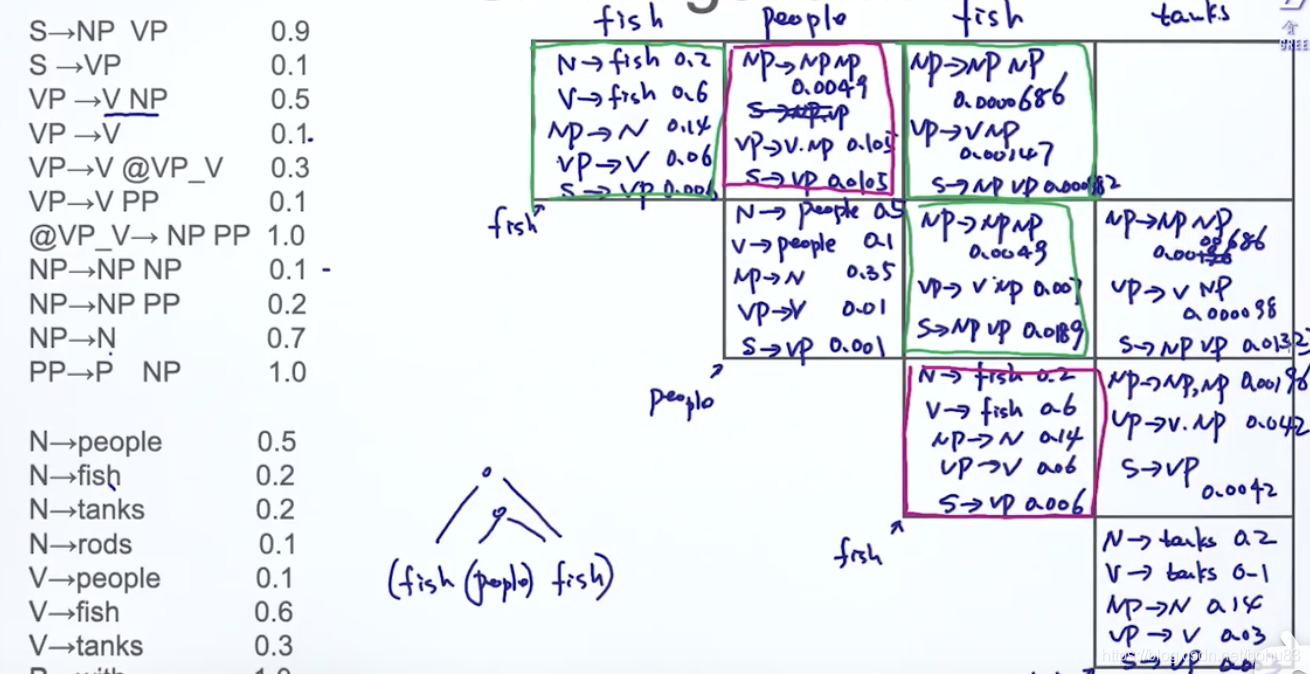 S→NP VP 0.9
S →VP 0.1
VP →V NP 0.5
VP →V 0.1
VP→V @VP_V 0.3
VP→V PP 0.1
@VP_V→ NP PP 1.0
NP→NP NP 0.1
NP→NP PP 0.2
NP→N 0.7
PP→P NP 1.0
N→people 0.5
N→fish 0.2
N→tanks 0.2
N→rods 0.1
V→people 0.1
V→fish 0.6
V→tanks 0.3
fish people fish tanks
N→fish 0.2
V→fish 0.6
NP→N 0.14
VP→V 0.06
S→VP 0.006
NP→NP NP
0.0049
S→NP VP
VP→V.NP 0.105
S→VP 0.0105
NP→NP NP
0.0000686
VP→V NP
0.00147
S→NP VP 0.000882
fish
N→people 0.5
V→people 0.1
NP→N 0.35
VP→V 0.01
S→VP 0.001
NP→NP NP
0.0049
VP→V NP 0.007
S→NP VP 0.0189
NP→NP NP
VP→V NP
0.000098
S→NP VP
people
N→fish 0.2
V→fish 0.6
NP→N 0.14
VP→V 0.06
S→VP 0.006
NP→NP,NP 0.00196
VP→V.NP 0.042
S→VP
0.0042
fish
N→tanks 0.2
V→tanks 0.1
NP→N 0.14
VP→V 0.03
S→VP
(fish (people) fish)